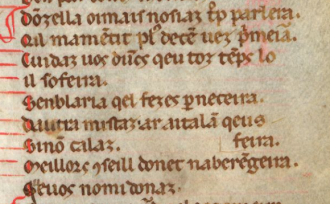 Dõzella oimais nosiaz trp parleira.
Qil mamẽtit pl' decẽ uez p̃meiã.
Cuidaz uos dũcs qeu toz tẽps lo
il sofeira.
Senblaria qel fezes p neceira.
Dautra mistaz ar aitalã qeus
Sinõ calaz. feira.
Meillors 9seill donet naberẽgeira.
Qe uos nomi donaz.